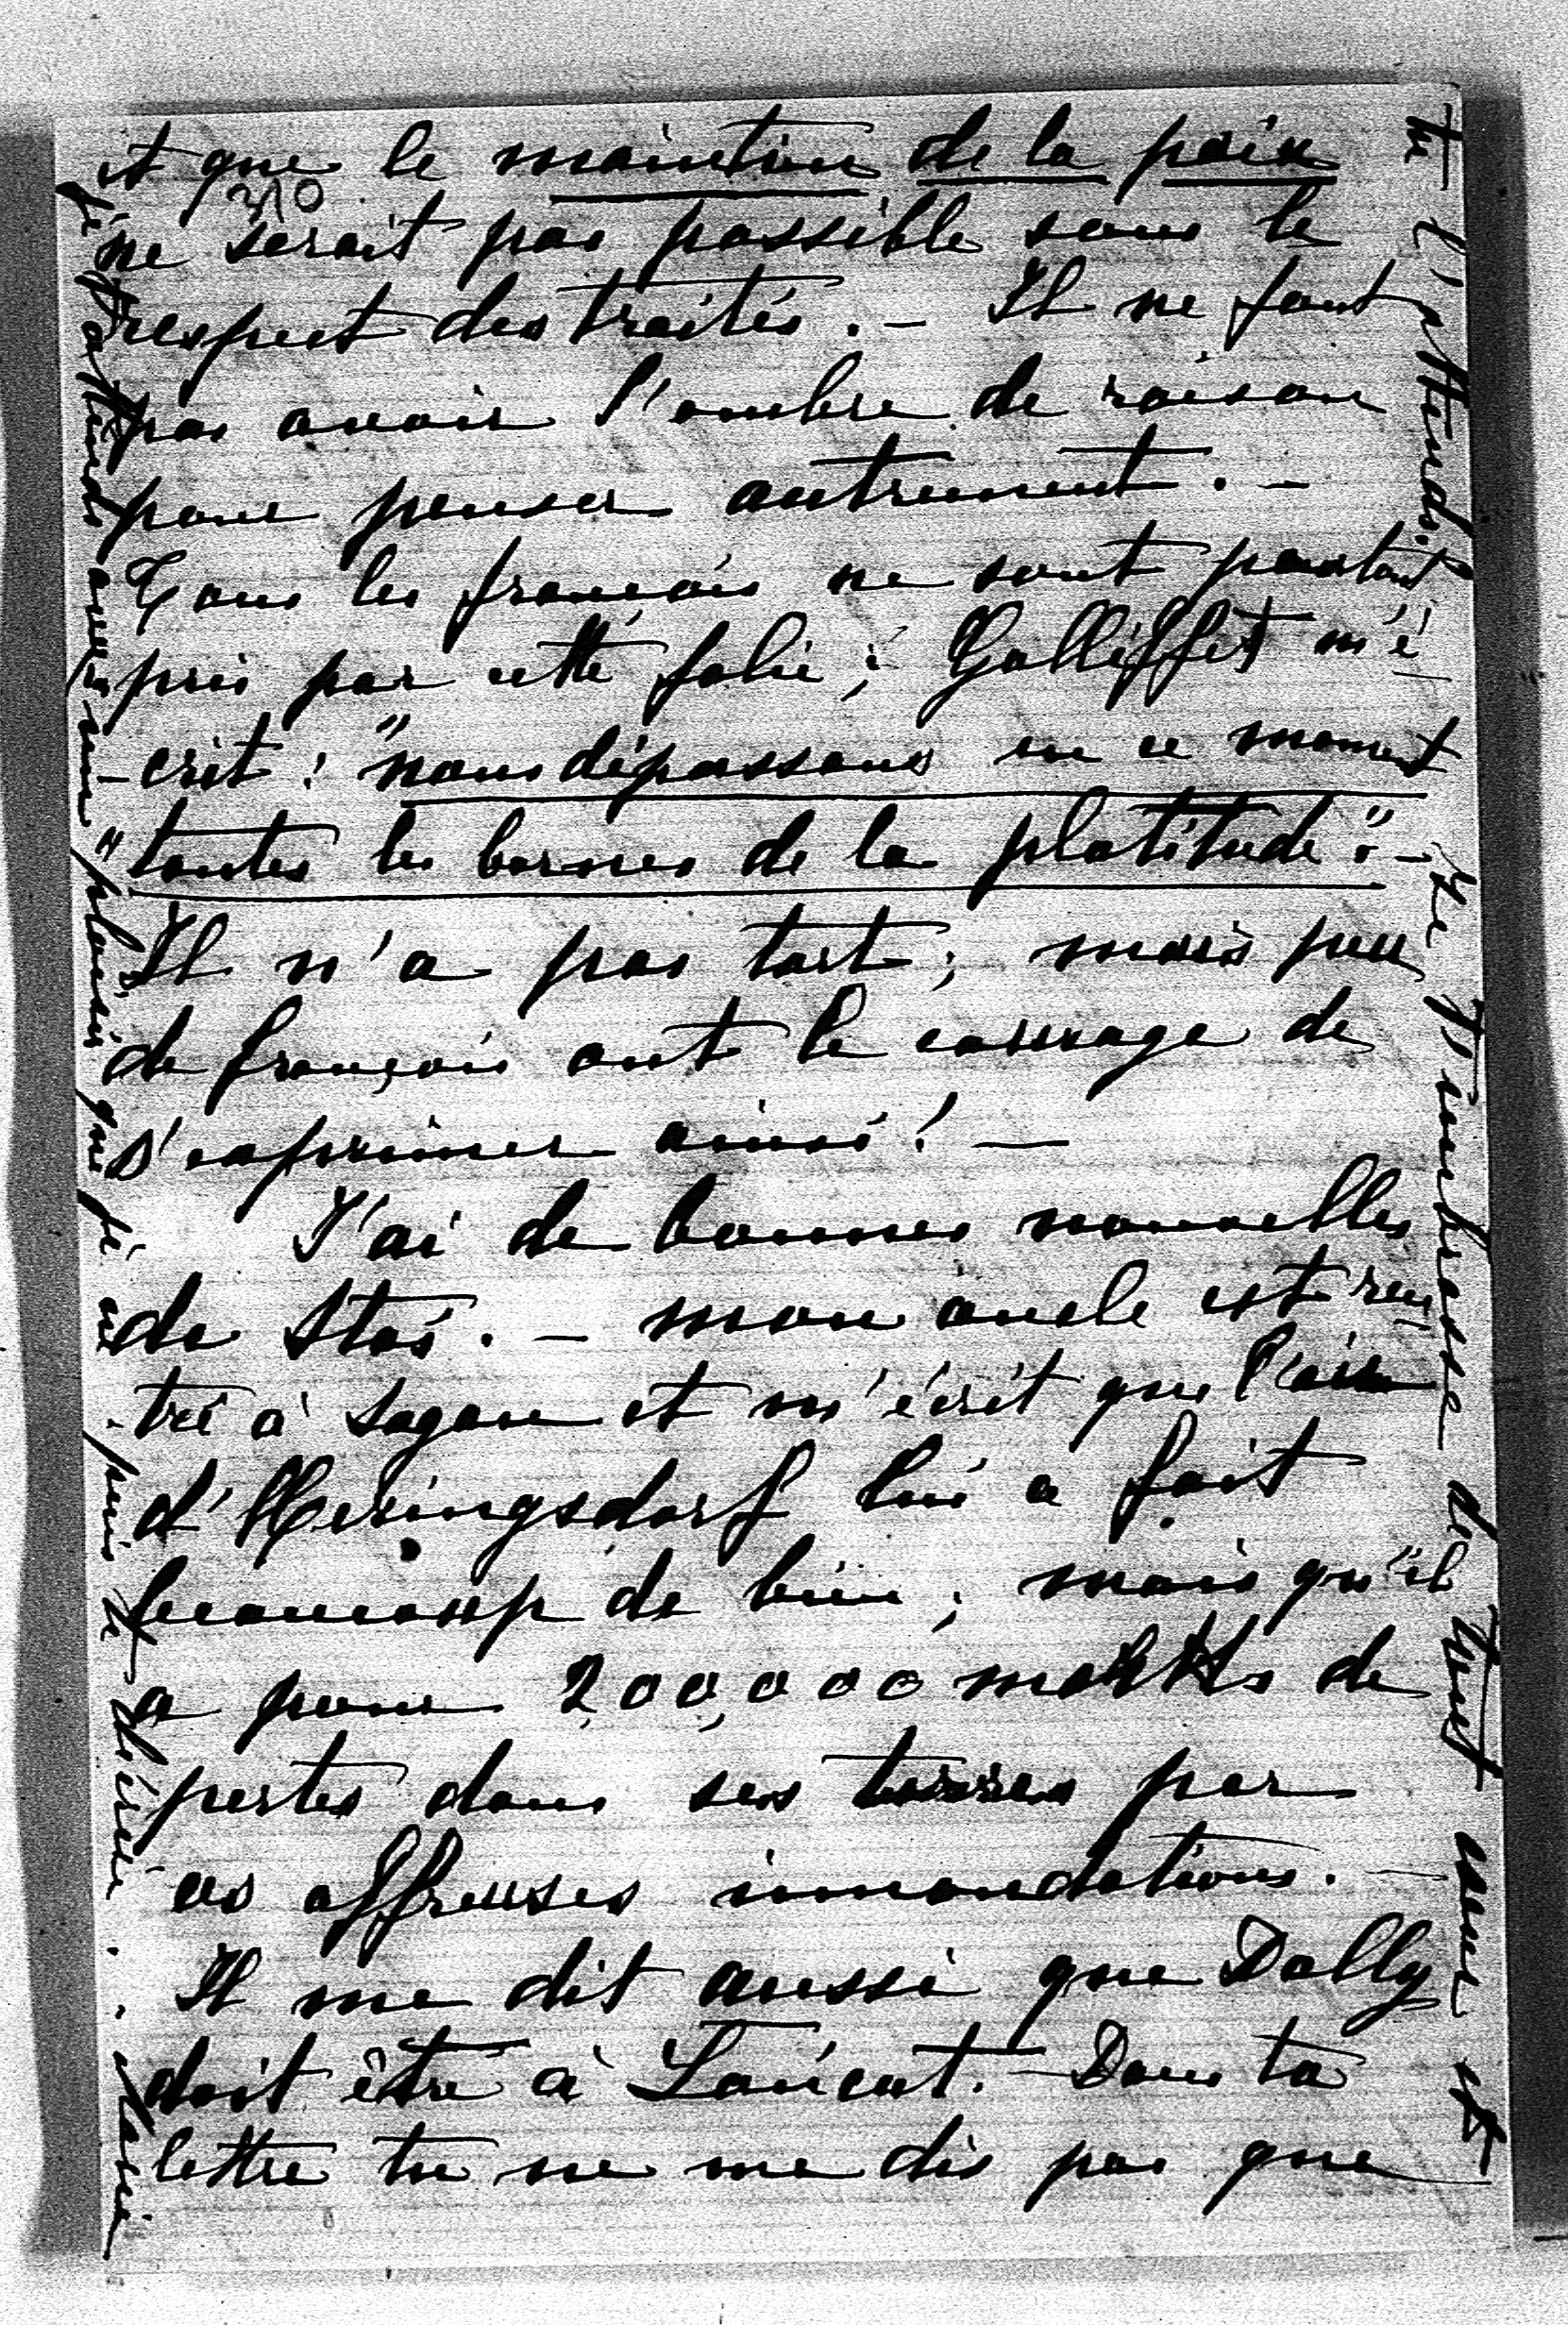 et que le maintien de la paix
310
ne serait pas possible sans le
respect des traités. – Il ne faut
pas avoir l'ombre de raison
pour penser autrement. –
Tous les français ne sont pourtant
pris par cette folie; Galliffet m'é-
-crit: "nous dépassons en ce moment
"toutes les bornes de la platitude". –
Il n'a pas tort; mais peu
de français ont le courage de
s'exprimer ainsi! —
J'ai de bonnes nouvelles
de Stas. – mon oncle est ren-
tré à Sagan et m'écrit que l'air
d'Heringsdorf lui a fait
beaucoup de bien; mais qu'il
a pour 200,000 marks de
pertes dans ses terres par
ces affreuses inondations. –
Il me dit aussi que Dolly
doit être à Łańcut. – Dans ta
lettre tu ne me dis pas que
tu l'attends. Je t'embrasse de tout cœur et
je t'attends avec un plaisir que je ne puis te décrire.